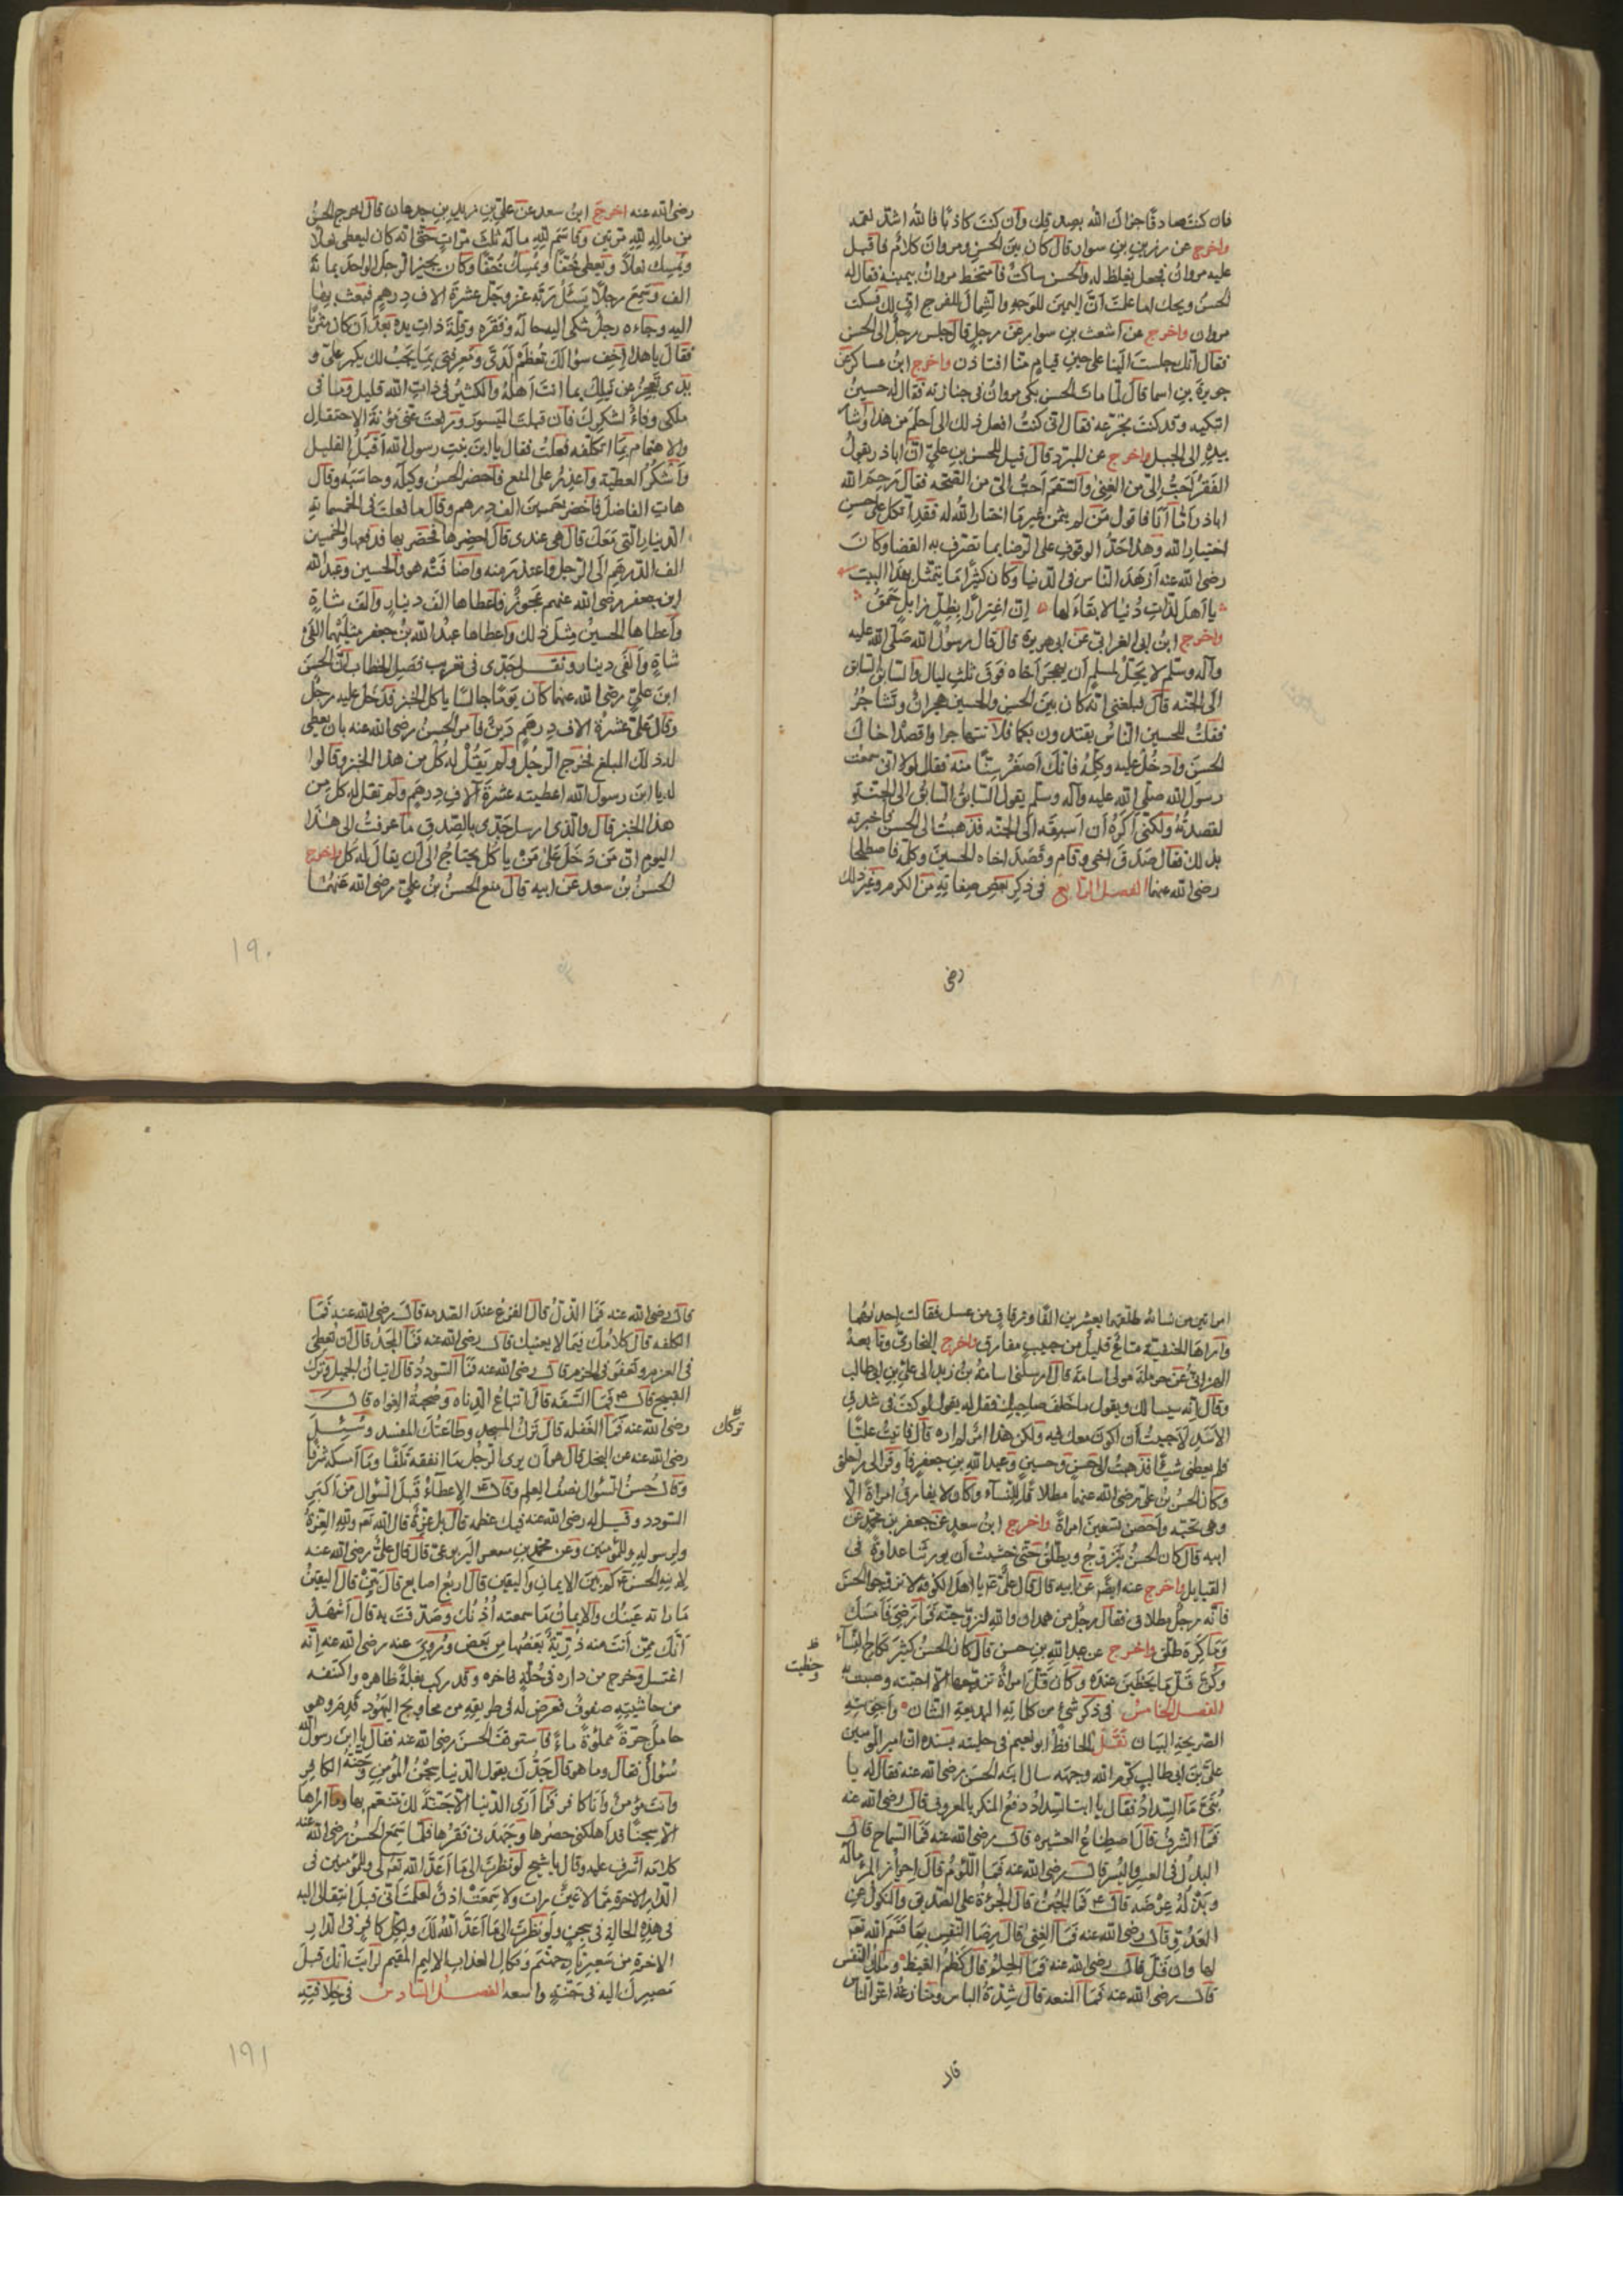 فان كنت صادقا جزاك الله بصدقك وان كنت كاذبا فالله اشد نقمة
واخرج عن رزين بن سوار قال كان بين الحسن ومروان كلام فاقبل
عليه مروان فجعل يغلظ له والحسن ساكت فامتخط مروان بيمينه فقال له
الحسن ويحك اما علمت ان اليمين للوجه والشمال للفرج اف لك فسكت
مروان واخرج عن اشعث بن سوار عن رجل قال جلس رجل الى الحسن
فقال انك جلست الينا على حين قيام منا افتاذن واخرج ابن عساكر عن
جويرة بن اسما قال لما مات الحسن بكى مروان فى جنازته فقال له حسين
اتبكيه وقد كنت تجرعه فقال انى كنت افعل ذلك الى احلم من هذا واشار
بيده الى الجبل واخرج عن المبرد قال قيل للحسن بن على ان اباذر يقول
الفقر احب الى من الغنى والسقم احب الى من الصحة فقال رحم الله
اباذر اما انا فاقول من لم يتمن غير ما اختار الله له فقد اتكل على حسن
اختيار الله وهذا حد الوقوف على الرضا بما تصرف به القضا وكان
رضى الله عنه ازهد الناس فى الدنيا وكان كثيرا ما يتمثل بهذا البيت
يا اهل لذات دنيا لا بقاء لها ان اغترارا بظل زايل حمق
واخرج ابن ابى الفراتى عن ابى هريرة قال قال رسول الله صلى الله عليه
وآله وسلم لا يحل لمسلم ان يهجر اخاه فوق ثلث ليال والسابق السابق
الى الجنه قال فبلغنى انه كان بين الحسن والحسين هجران وتشاجر
فقلت للحسين الناس يقتدون بكما فلا تتهاجرا واقصد اخاك
الحسن وادخل عليه وكلمه فانك اصغر سنا منه فقال لولا انى سمعت
رسول الله صلى الله عليه وآله وسلم يقول السابق السابق الى الجنة
لقصدته ولكنى اكره ان اسبقه الى الجنه فذهبت الى الحسن فاخبرته
بذلك فقال صدق اخى وقام وقصد اخاه الحسين وكلمه فاصطلحا
رضى الله عنهما الفصل الرابع فى ذكر بعض صفاته من الكرم وغير ذلك
رضى
رضى الله عنه اخرج ابن سعد عن على بن زيد بن جدعان قال خرج الحسن
من ماله لله مرتين وقاسم لله ماله ثلث مرات حتى انه كان ليعطى نعلا
ويمسك نعلا ويعطى خفا ويمسك خفا وكان يجيز الرجل الواحد بمائة
الف وسمع رجلا يسئل ربه عز وجل عشرة الاف درهم فبعث بها
اليه وجاءه رجل شكى اليه حاله وفقره وقلة ذات يده بعد ان كان مثريا
فقال يا هذا حق سؤالك تعظم لدى ومعرفتى بما يجب لك يكبر على و
يدى تعجز عن نيلك بما انت اهله والكثير فى ذات الله قليل وما فى
ملكى وفاء لشكرك فان قبلت الميسور ورفعت عنى مؤنة الاحتفال
والاهتمام بما اتكلفه فعلت فقال يا ابن بنت رسول الله اقبل القليل
واشكر العطية واعذر على المنع فاحضر الحسن وكيله وحاسبه وقال
هات الفاضل فاحضر خمسين الف درهم وقال ما فعلت فى الخمسمائة
الدينار التى معك قال هى عندى قال احضرها فحضر بها فدفعها والخمسين
الف الدرهم الى الرجل واعتذر منه واضافته هو والحسين وعبد الله
ابن جعفر رضى الله عنهم عجوز فاعطاها الف دينار والف شاة
واعطاها الحسين مثل ذلك واعطاها عبد الله بن جعفر مثليهما الفى
شاة والفى دينار ونقل جدى فى تقريب فصل الخطاب ان الحسن
ابن على رضى الله عنهما كان يوما جالسا ياكل الخبز فدخل عليه رجل
وقال على عشرة الاف درهم دين فامر الحسن رضى الله عنه بان يعطى
له ذلك المبلغ فخرج الرجل ولم يقل له كل من هذا الخبز وقالوا
له يا ابن رسول الله اعطيته عشرة آلاف درهم ولم تقل له كل من
هذا الخبز قال والذى ارسل جدى بالصدق ما عرفت الى هذا
اليوم ان من دخل على من ياكل يحتاج الى ان يقال له كل واخرج
الحسن بن سعد عن ابيه قال متع الحسن بن على رضى الله عنهما
١٩٠
امراتين من نسائه طلقهما بعشرين الفا وزقاق من عسل فقالت احدىهما
واراها الحنفية متاع قليل من حبيب مفارق واخرج البخارى وتابعه
الهزانى عن حرملة مولى اسامة قال ارسلنى اسامة بن زيد الى على بن ابى طالب
وقال انه سيسالك ويقول ما خلف صاحبك فقل له يقول لو كنت فى شدق
الاسد لاحببت ان اكون معك فيه ولكن هذا امر لم اره قال فاتيت عليا
فلم يعطنى شيئا فذهبت الى حسن وحسين وعبد الله بن جعفر فاوقرا لى راحلتى
وكان الحسن بن على رضى الله عنهما مطلاقا للنساء وكان لا يفارق امراة الا
وهى تحبه واحصن تسعين امراة واخرج ابن سعد عن جعفر بن محمد عن
ابيه قال كان الحسن يتزوج ويطلق حتى خشيت ان يورثنا عداوة فى
القبايل واخرج عنه ايضا عن ابيه قال قال على يا اهل الكوفه لا تزوجوا الحسن
فانه رجل مطلاق فقال رجل من همدان والله لنزوجنه فما رضى امسك
وما كره طلق واخرج عن عبد الله بن حسن قال كان الحسن كثير نكاح النساء
وكن قل ما يحظين عنده وكان قل امراة تزوجها الا احبته وصبت به
ظ وحظيت
الفصل الخامس فى ذكر شئ من كلماته البديعة الشان واجوبته
الصريحة البيان نقل الحافظ ابو نعيم فى حليته بسنده ان امير المؤمنين
على بن ابى طالب كرم الله وجهه سال ابنه الحسن رضى الله عنه فقال له يا
بنى ما السداد فقال يا ابت السداد دفع المنكر بالمعروف قال رضى الله عنه
فما الشرف قال اصطناع العشيره قال رضى الله عنه فما السماح قال
البذل فى العسر واليسر قال رضى الله عنه فما اللؤم قال احراز المرء ماله
وبذله عرضه قال فما الجبن قال الجرءة على الصديق والنكول عن
العدو قال رضى الله عنه فما الغنى قال رضا النفس بما قسم الله تعالى
لها وان قل قال رضى الله عنه فما الحلم قال كظم الغيظ وملك النفس
قال رضى الله عنه فما المنعه قال شدة الباس ومنازعة اعز الناس
قال
قال رضى الله عنه فما الذل قال الفزع عند الصدمه قال رضى الله عنه فما
الكلفه قال كلامك فيما لا يعنيك قال رضى الله عنه فما المجد قال ان تعطى
فى العزم وتعفو فى الجرم قال رضى الله عنه فما السودد قال اتيان الجميل وترك
القبيح قال فما السفه قال اتباع الدناه وصحبة الغواه قال
رضى الله عنه فما الغفله قال ترك المسجد وطاعتك المفسد وسئل
تركك
رضى الله عنه عن البخل قال هو ان يرى الرجل ما انفقه تلفا وما امسكه شرفا
وقال حسن السؤال نصف العلم وقال الاعطاء قبل السؤال من اكبر
السودد وقيل له رضى الله عنه فيك عظمه قال بل عزة قال الله تعالى ولله العزة
ولرسوله وللمؤمنين وعن محمد بن مسعر اليربوعى قال قال على رضى الله عنه
لابنه الحسن كم بين الايمان واليقين قال اربع اصابع قال بين قال اليقين
ما راته عينك والايمان ما سمعته اذنك وصدقت به قال اشهد
انك ممن انت منه ذرية بعضها من بعض وروى عنه رضى الله عنه انه
اغتسل وخرج من داره فى حلة فاخره وقد ركب بغلة ظاهره واكتنفه
من حاشيته صفوف فعرض له فى طريقه من محاويج اليهود هم وهو
حامل جرة مملوة ماء فاستوقف الحسن رضى الله عنه فقال يا ابن رسول الله
سؤال فقال وما هو قال جدك يقول الدنيا سجن المؤمن وجنة الكافر
وانت مؤمن وانا كافر فما ارى الدنيا الا جنة لك تتنعم بها وما اراها
الا سجنا قد اهلكنى حصرها وجهدنى فقرها فلما سمع الحسن رضى الله عنه
كلامه اشرف عليه وقال يا شيخ لو نظرت الى ما اعد الله تعالى لى وللمؤمنين فى
الدار الاخرة مما لا عين رات ولا سمعت اذن لعلمت انى قبل انتقالى اليه
فى هذه الحالة فى سجن ولو نظرت الى ما اعد الله لك ولكل كافر فى الدار
الاخرة من سعير نار جهنم ونكال العذاب الاليم المقيم لرايت انك قبل
مصيرك اليه فى جنة واسعه الفصل السادس فى خلافته
١٩١